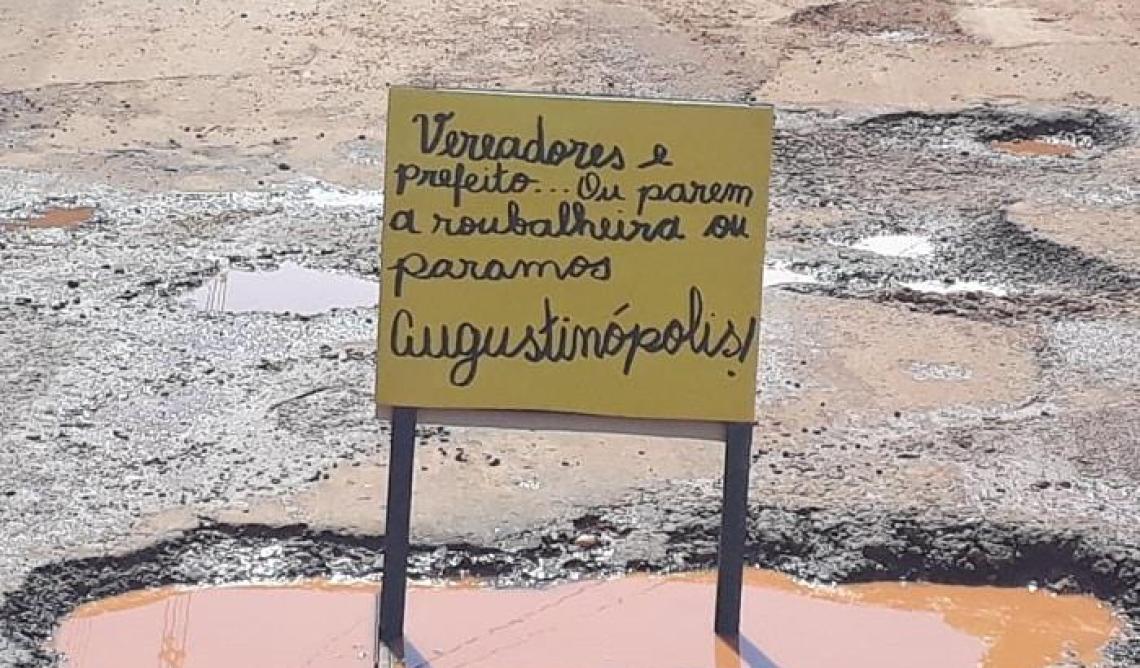 Vereadores e
prefeito... Ou parem
a roubalheira ou
paramos
Augustinópolis!